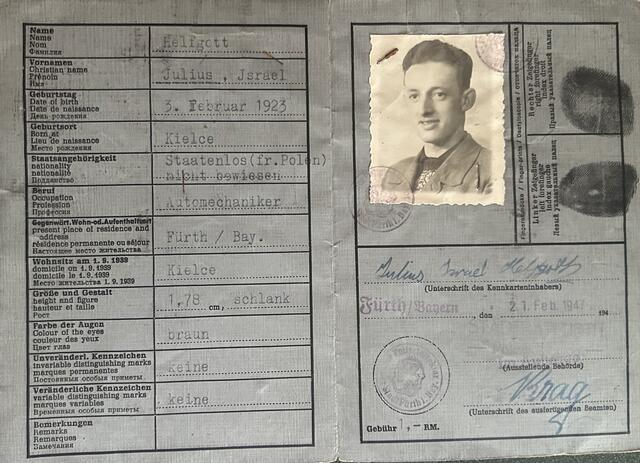 Name
Name
Nom
Фамилия
Helfgott
Vornamen
Christian name
Prénoin
Имя
Julius , Jsrael
Geburtstag
Date of birth
Date de naissance
День рождения
3. Februar 1923
Geburtsort
Born at
Lieu de naissance
Место рождения
Kielce
Staatsangehörigkeit
nationality
nationalité
Подданство
Staatenlos(fr.Polen)
nicht bewiesen
Beruf
Occupation
Profession
Профессия
Automechaniker
Gegenwärt. Wohn-od. Aufenthaltsort
present place of residence and
address
résidence permanente ou séjour
Настоящее место жительства
Fürth / Bay.
Wohnsitz am 1. 9. 1939
domicile on 1. 9. 1939
domicile le 1. 9. 1939
Место жительства 1. 9. 1939
Kielce
Größe und Gestalt
height and figure
hauteur et taille
Рост
1,78 cm, schlank
Farbe der Augen
Colour of the eyes
couleur des yeux
Цвет глаз
braun
Unveränderl. Kennzeichen
invariable distinguishing marks
marques permanentes
Постоянные особые приметы
keine
Veränderliche Kennzeichen
variable distinguishing marks
marques variables
Временные особые приметы
keine
Bemerkungen
Remarks
Remarques
Замечания
Rechter Zeigefinger
right forefinger
index droit
Правый указательный палец
Linker Zeigefinger
left forefinger
index gauche
Левый указательный палец
Julius Israel Helfgott
(Unterschrift des Kennkarteninhabers)
Fürth/Bayern , den 21. Feb. 1947 194
(Ausstellende Behörde)
(Unterschrift des ausfertigenden Beamten)
Gebühr 1,- RM.